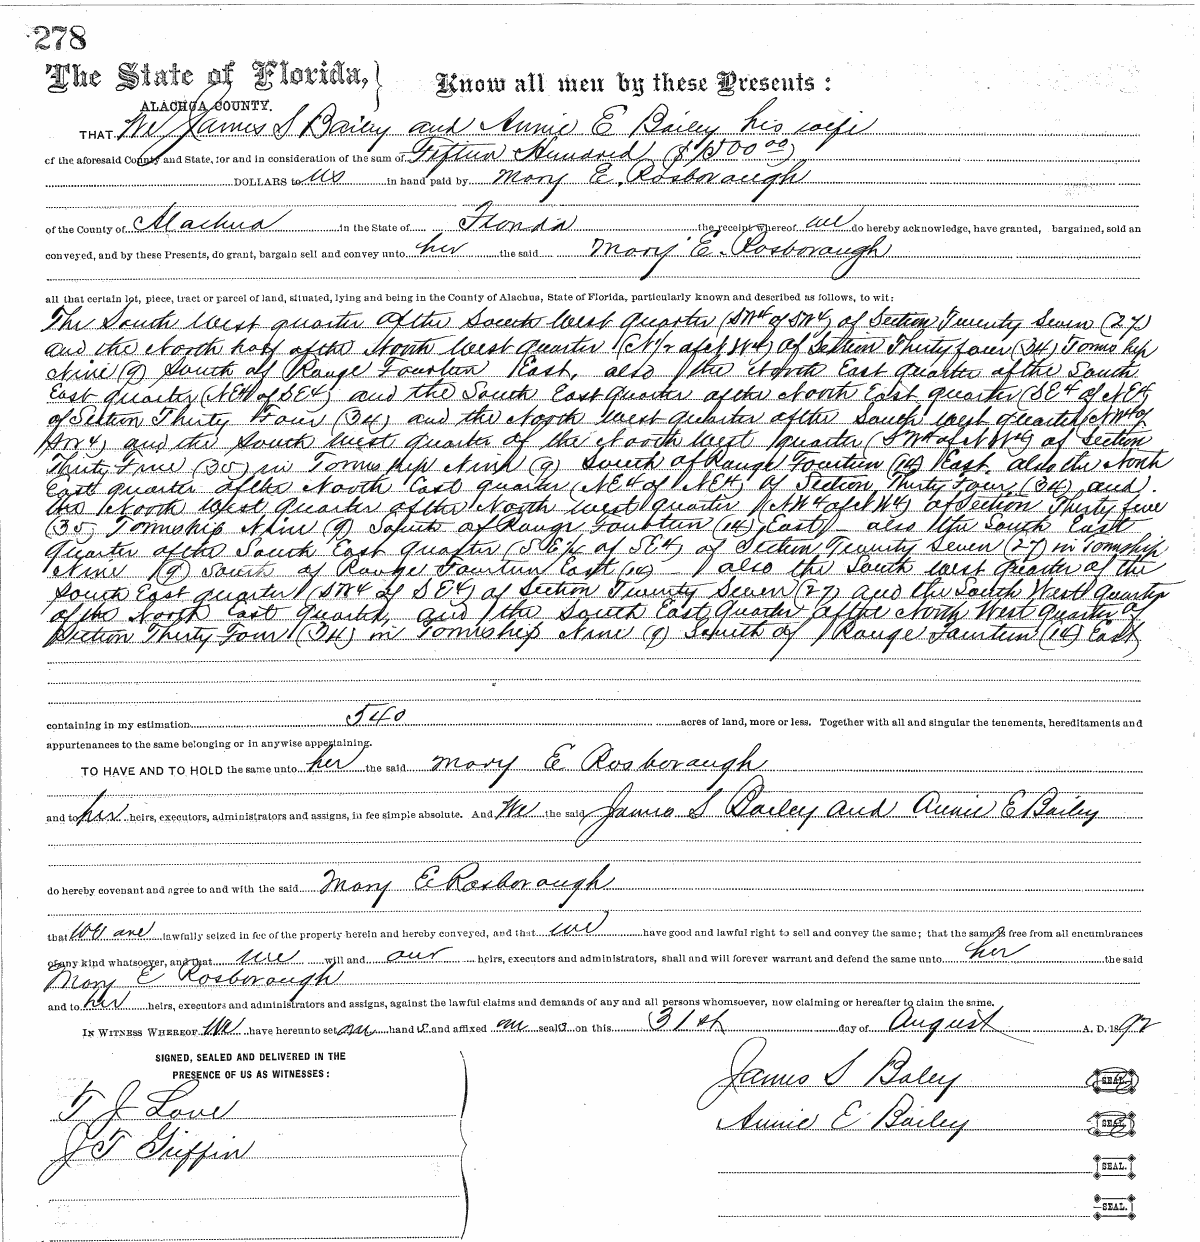 278
The State of Florida, } Know all men by these Presents:
ALACHUA COUNTY.
THAT We James S Bailey and Annie E Bailey his wife
of the aforesaid County and State, for and in consideration of the sum of Fifteen Hundred ($1500.00)
DOLLARS to us in hand paid by Mary E. Rosborough
of the County of Alachua in the State of Florida the receipt whereof we do hereby acknowledge, have granted, bargained, sold an
conveyed, and by these Presents, do grant, bargain sell and convey unto her the said Mary E. Rosborough
all that certain lot, piece, tract or parcel of land, situated, lying and being in the County of Alachua, State of Florida, particularly known and described as follows, to wit:
The South West quarter of the South West Quarter (SW4 of SW4) of Section Twenty Seven (27)
and the North half of the North West Quarter (N1/2 of NW4) of Section Thirty four (34) Township
Nine (9) South of Range Fourteen East, also the North East quarter of the South
East quarter (NE4 of SE4) and the South East Quarter of the North East quarter (SE4 of NE4)
of Section Thirty Four (34) and the North West quarter of the South West quarter (NW4 of
SW4) and the South West quarter of the North West quarter (SW4 of NW4) of Section
Thirty Five (35) in Township Nine (9) South of Range Fourteen (14) East. also the North
East quarter of the North East quarter (NE4 of NE4) of Section Thirty Four (34) and.
the North West Quarter of the North West quarter (NW4 of NW4) of Section Thirty five
(35) Township Nine (9) South of Range Fourteen (14) East - also the South East
Quarter of the South East Quarter (SE1/4 of SE4) of Section Twenty Seven (27) in Township
Nine (9) South of Range Fourteen East (14) - also the South West quarter of the
South East quarter (SW4 of SE4) of Section Twenty Seven (27) and the South West Quarter
of the North East quarter, and the South East Quarter of the North West Quarter of
Section Thirty Four (34) in Township Nine (9) South of Range Fourteen (14) East
containing in my estimation 540 acres of land, more or less. Together with all and singular the tenements, hereditaments and
appurtenances to the same belonging or in anywise appertaining.
TO HAVE AND TO HOLD the same unto her the said Mary E Rosborough
and to her heirs, executors, administrators and assigns, in fee simple absolute. And We the said James S Bailey and Annie E Bailey
do hereby covenant and agree to and with the said Mary E Rosborough
that we are lawfully seized in fee of the property herein and hereby conveyed, and that we have good and lawful right to sell and convey the same; that the same is free from all encumbrances
of any kind whatsoever, and that we will and our heirs, executors and administrators, shall and will forever warrant and defend the same unto her the said
Mary E Rosborough
and to her heirs, executors and administrators and assigns, against the lawful claims and demands of any and all persons whomsoever, now claiming or hereafter to claim the same.
IN WITNESS WHEREOF We have hereunto set our hand s and affixed our seals on this 31st day of August A. D. 1892
SIGNED, SEALED AND DELIVERED IN THE
PRESENCE OF US AS WITNESSES:
James S Baley SEAL.
T J Love
Annie E Bailey SEAL.
J T Griffin
SEAL.
SEAL.